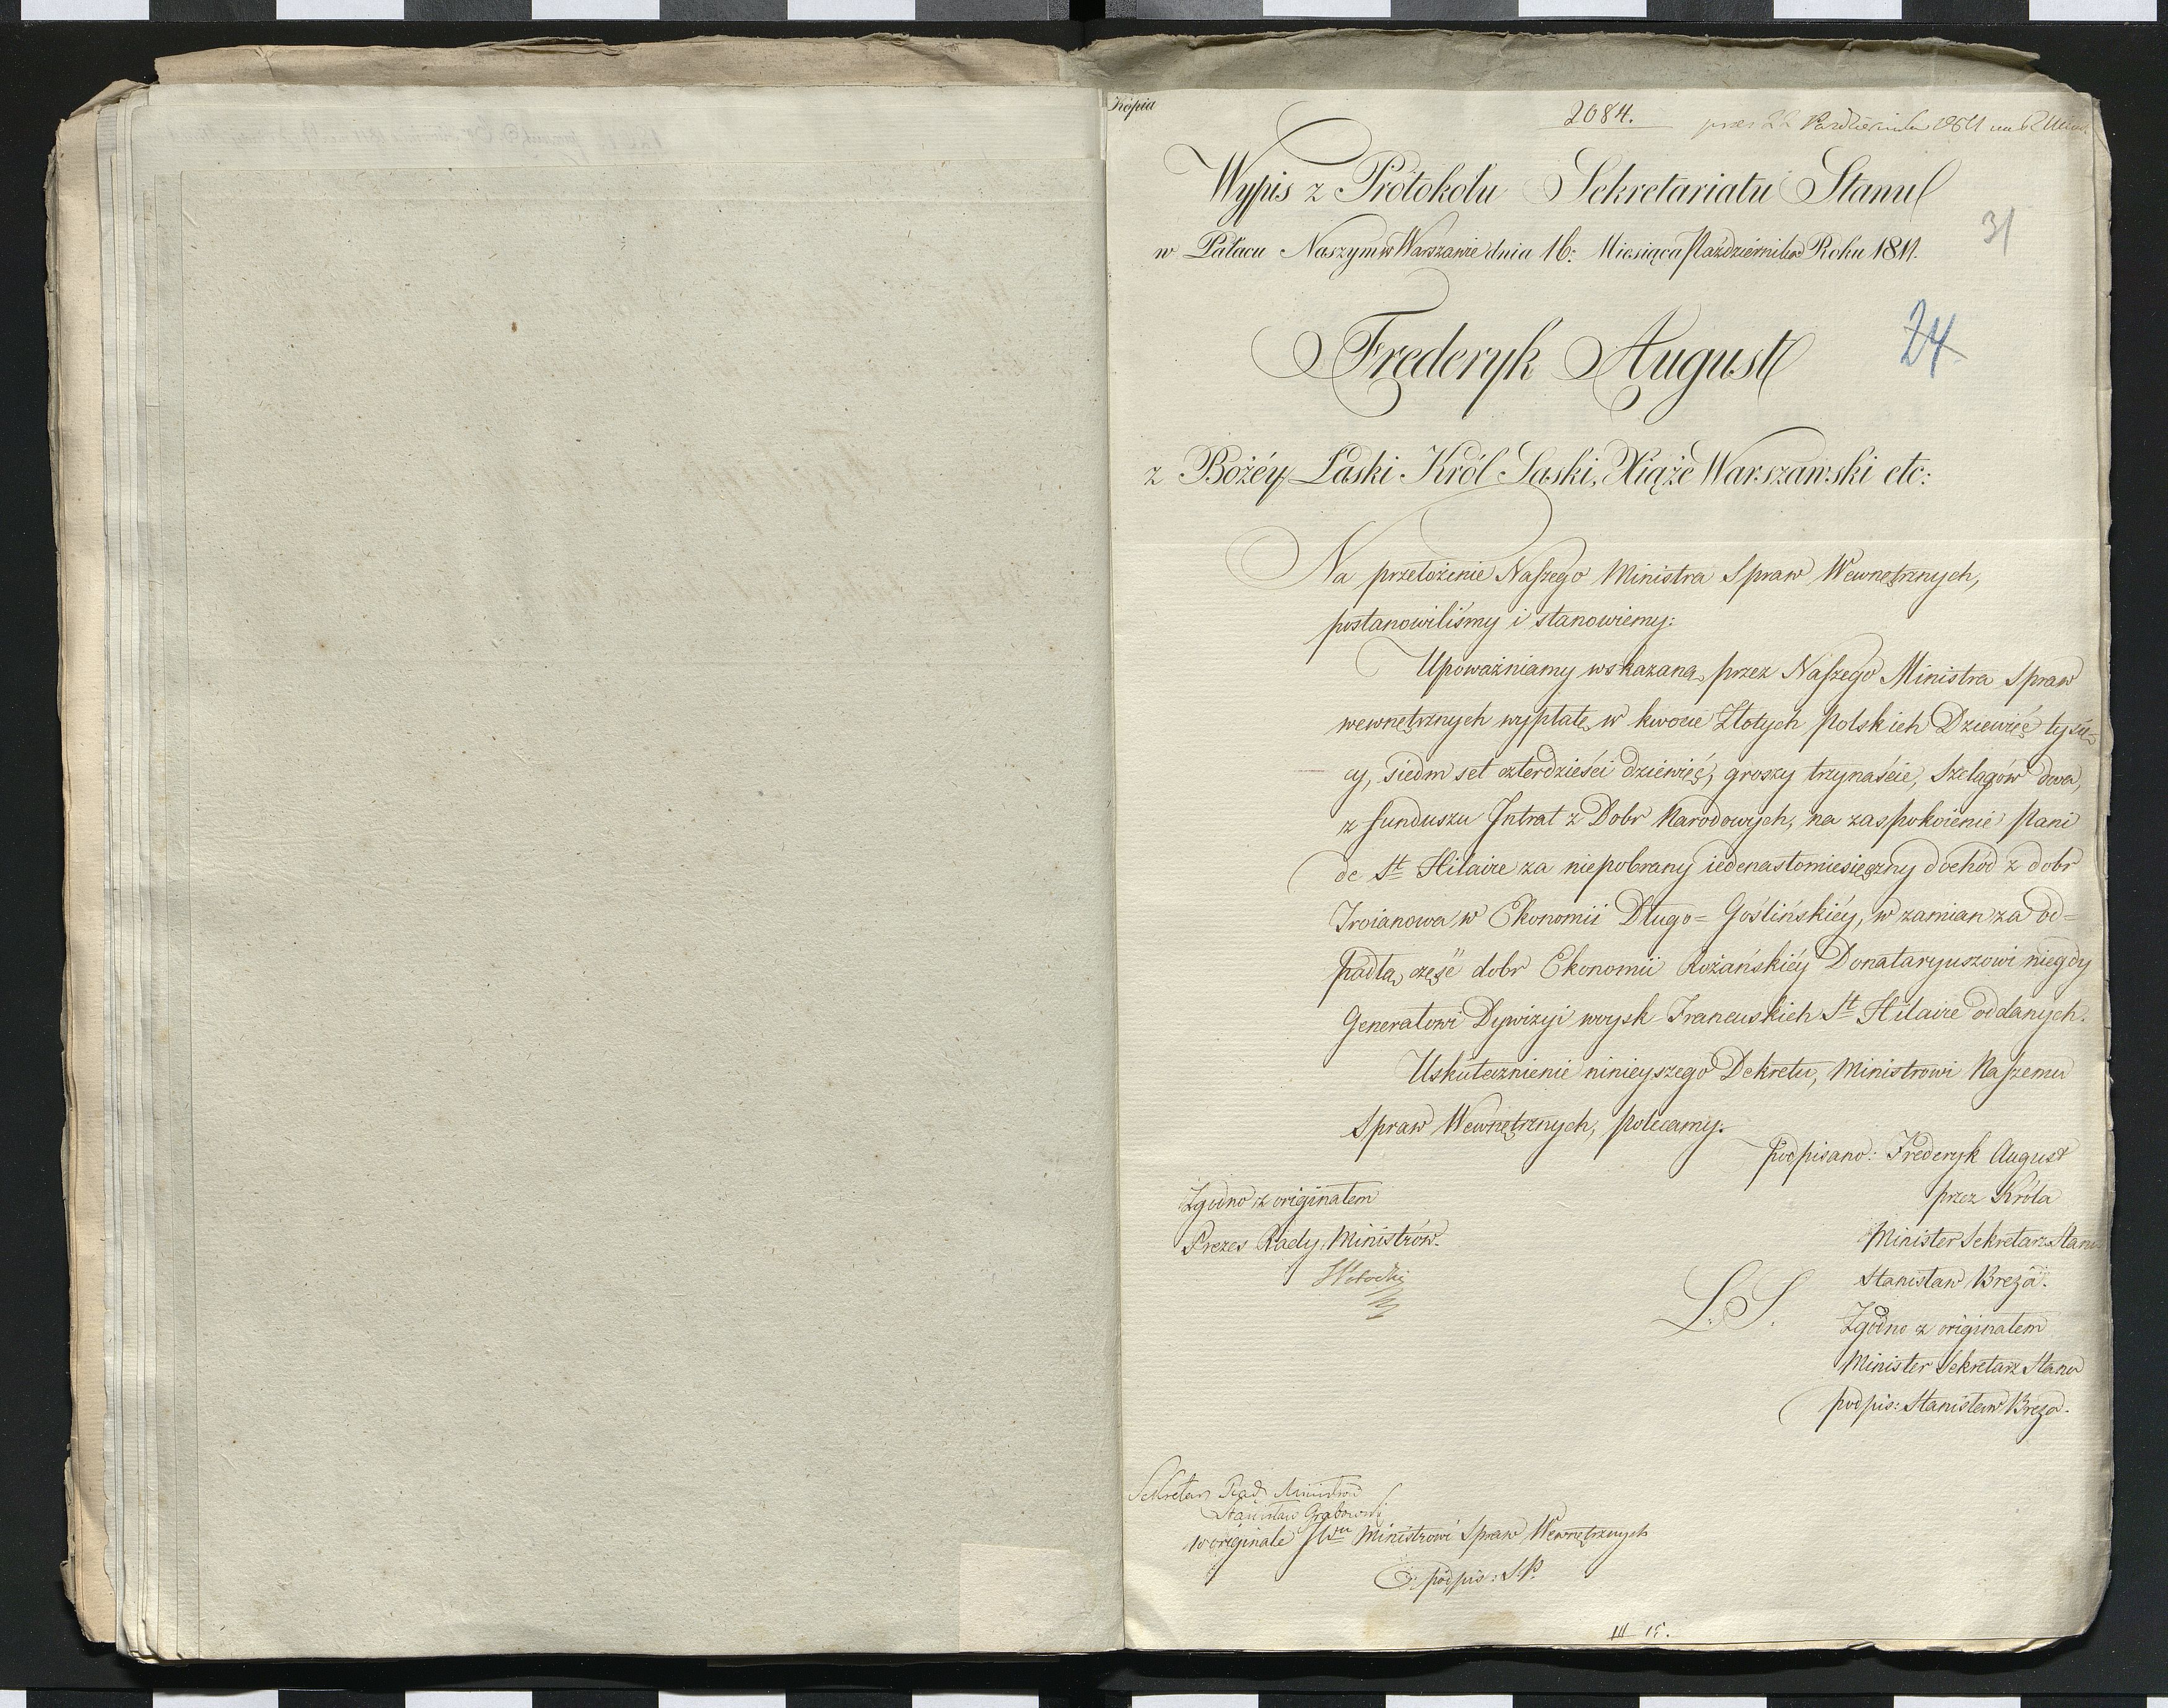 Kopia
2084.
prez. 22 Października 1811
Wypis z Protokołu Sekretariatu Stanu
31
w Pałacu Naszym w Warszawie dnia 16: Miesiąca Października Roku 1811.
24
Frederyk August
z Bożéy Łaski Król Saski, Xiąże Warszawski etc:
Na przełożenie Naszego Ministra Spraw Wewnętrznych,
postanowiliśmy i stanowiemy:
Upoważniamy wskazaną przez Naszego Ministra Spraw
wewnętrznych wypłatę w kwocie Złotych Polskich Dziewięć tysię-
cy, siedm set czterdzieści dziewięć, groszy trzynaście, Szelągów dwa,
z funduszu Intrat z Dobr Narodowych, na zaspokoienie Pani
de St Hilaire za niepobrany iedenastomiesięczny dochód z dobr
Troianowa w Ekonomii Długo=Goślińskiéy, w zamian za od=
padłą część dobr Ekonomii Rożańskiéy Donataryuszowi niegdy
Generałowi Dywizyi woysk Francuskich St Hilaire oddanych.
Uskutecznienie ninieyszego Dekretu, Ministrowi Naszemu
Spraw Wewnętrznych, polecamy.
podpisano: Frederyk August
przez Króla
Minister Sekretarz Stanu
Stanisław Breza.
L. S.
Zgodno z originałem
Minister Sekretarz Stanu
podpis: Stanisław Breza.
Zgodno z originałem
Prezes Rady Ministrów.
Sekretarz Rady Ministrów
Stanisław Grabowski
w originale JWu Ministrowi Spraw Wewnętrznych
podpis: S. P.